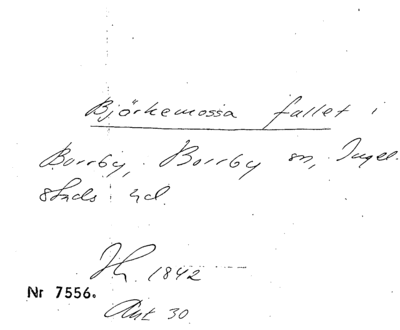 Björkemossa fallet i
Borrby, Borrby sn, Ingel-
stads hd.
Jh. 1842
Nr 7556.
Ant 30